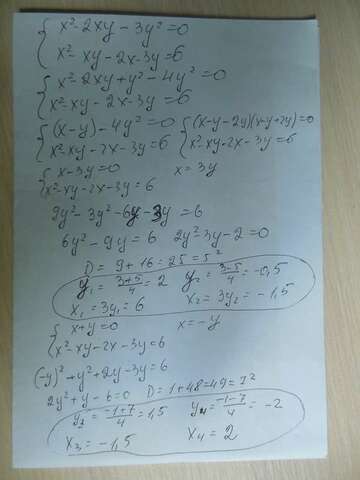 x²-2xy-3y²=0
x²-xy-2x-3y=6
x²-2xy+y²-4y²=0
x²-xy-2x-3y=6
(x-y)-4y²=0 (x-y-2y)(x-y+2y)=0
x²-xy-2x-3y=6 x²-xy-2x-3y=6
x-3y=0 x=3y
x²-xy-2x-3y=6
9y²-3y²-6y-3y=6
6y²-9y=6 2y²-3y-2=0
D=9+16=25=5²
y₁=(3+5)/4=2 y₂=(3-5)/4=-0,5
x₁=3y₁=6 x₂=3y₂=-1,5
x+y=0 x=-y
x²-xy-2x-3y=6
(-y)²+y²+2y-3y=6
2y²+y-6=0 D=1+48=49=7²
y₃=(-1+7)/4=1,5 y₄=(-1-7)/4=-2
x₃=-1,5 x₄=2